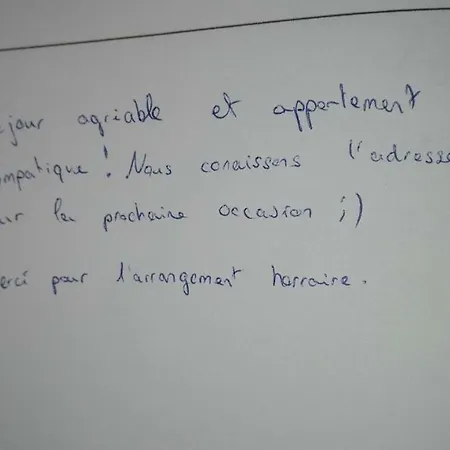 éjour agriable et appartement
ympatique! Nous conaissons l'adresse
ur la prochaine occasion ;)
erci pour l'arrangement horraire.